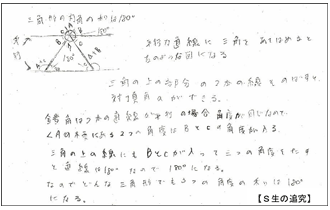 三角形の内角の和は180°
平行
180°
平行な直線に三角をあてはめると
このような図になる
三角の上の部分の2つの線をのばすと、
対頂角ができる。
錯角は2つの直線が平行の場合角度が同じなので、
三角の上の線にもBとCが入って三つの角度をたすと
直線は180°なので180°になる。
なのでどんな三角形でも3つの角度の和は180°
になる。
【S生の追究】